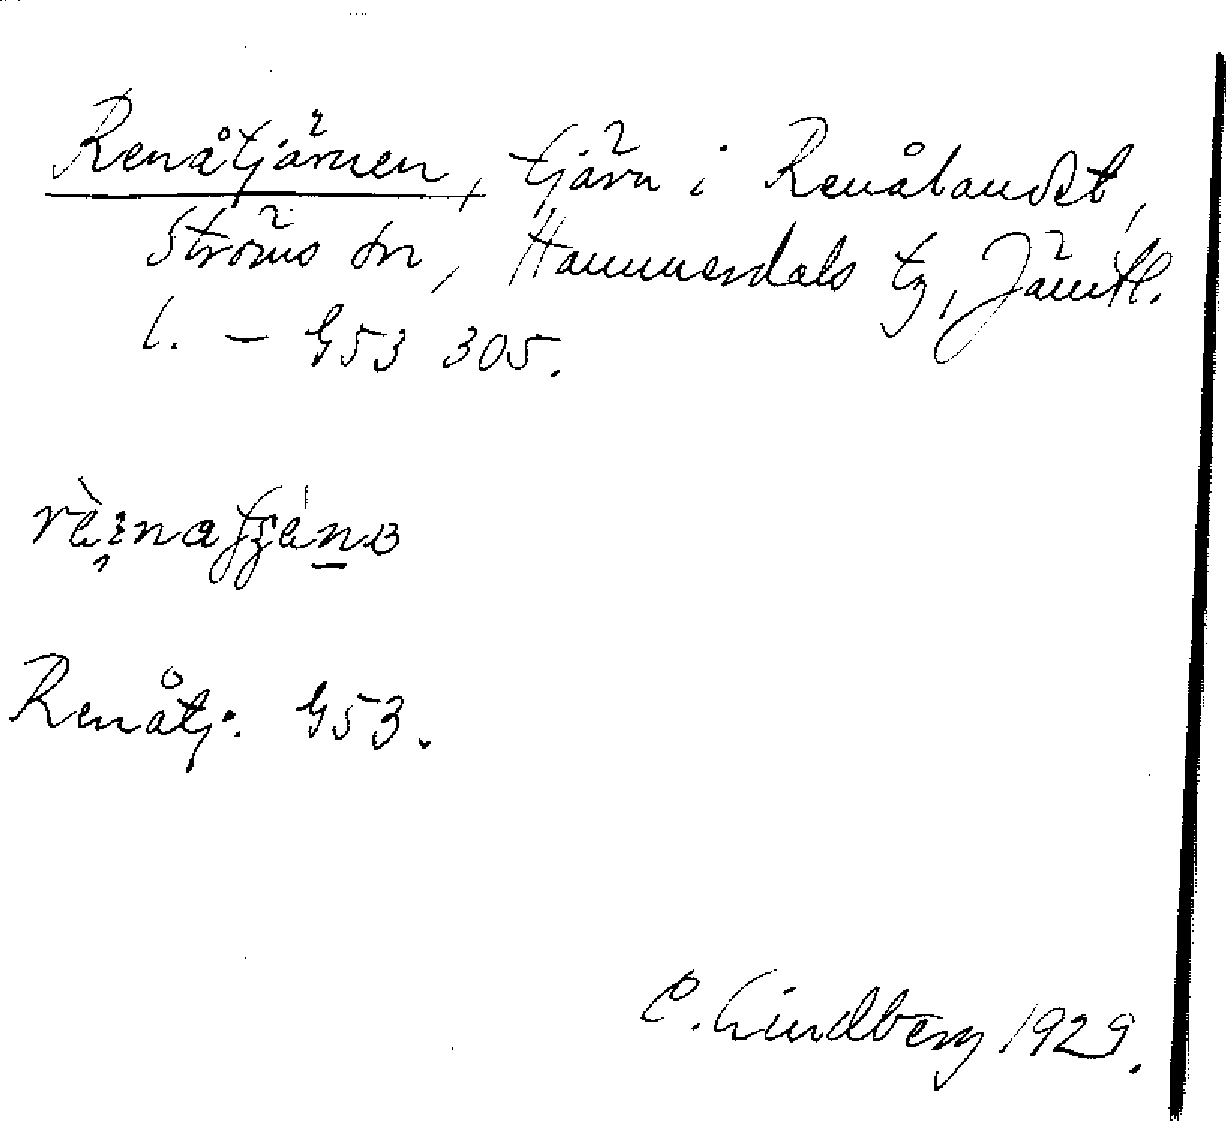 Renåtjärnen, tjärn i Renålandet,
Ströms sn, Hammerdals tg, Jämtl.
l. – G53 305.
Renåtj. G53.
C. Lindberg 1929.